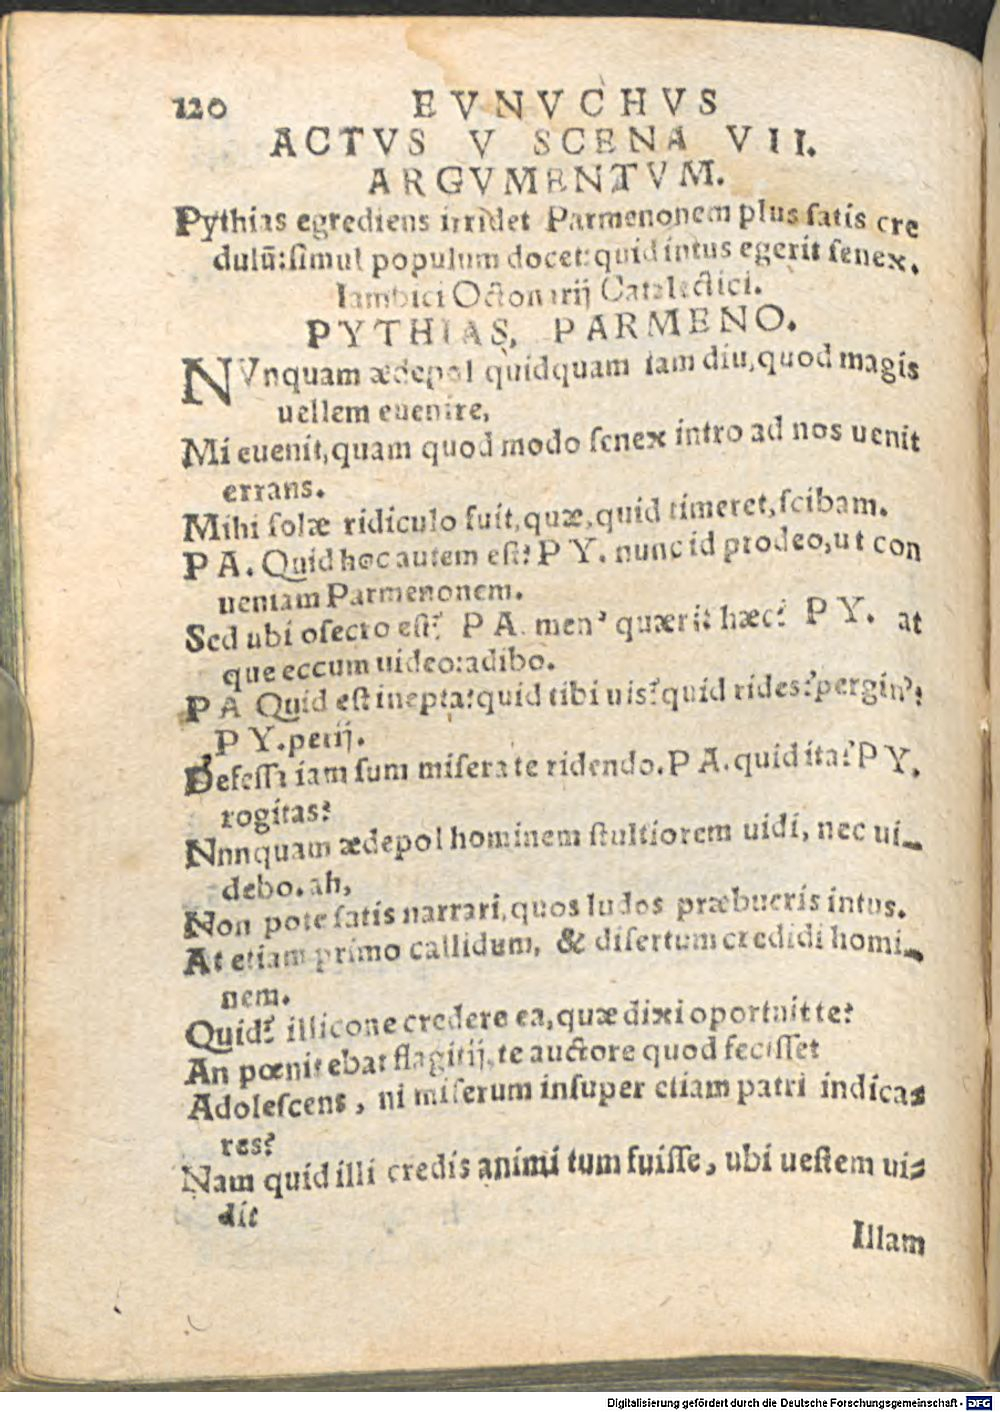 120 EVNVCHVS
ACTVS V SCENA VII.
ARGVMENTVM.
Pythias egrediens irridet Parmenonem plus ſatis cre
dulū:ſimul populum docet:quid intus egerit ſenex.
Iambici Octonarij Catalectici.
PYTHIAS, PARMENO.
NVnquam ædepol quidquam iam diu,quod magis
uellem euenire,
Mi euenit,quam quod modo ſenex intro ad nos uenit
errans.
Mihi ſolæ ridiculo fuit,quæ,quid timeret,ſcibam.
P A. Quid hoc autem eſt? P Y. nunc id prodeo,ut con
ueniam Parmenonem.
Sed ubi oſecro eſt? P A. men' quærit hæc? P Y. at
que eccum uideo:adibo.
P A Quid eſt inepta?quid tibi uis?quid rides?pergin'?
P Y.perij.
Defeſſa iam ſum miſera te ridendo.P A.quid ita?P Y.
rogitas?
Nnnquam ædepol hominem ſtultiorem uidi, nec ui-
debo.ah,
Non pote ſatis narrari,quos ludos præbueris intus.
At etiam primo callidum, & diſertum credidi homi-
nem.
Quid? illicone credere ea,quæ dixi oportuit te?
An pœnitebat flagitij,te auctore quod feciſſet
Adoleſcens, ni miſerum inſuper etiam patri indica=
res?
Nam quid illi credis animi tum fuiſſe, ubi ueſtem ui=
dit
Illam
Digitalisierung gefördert durch die Deutsche Forschungsgemeinschaft - DFG